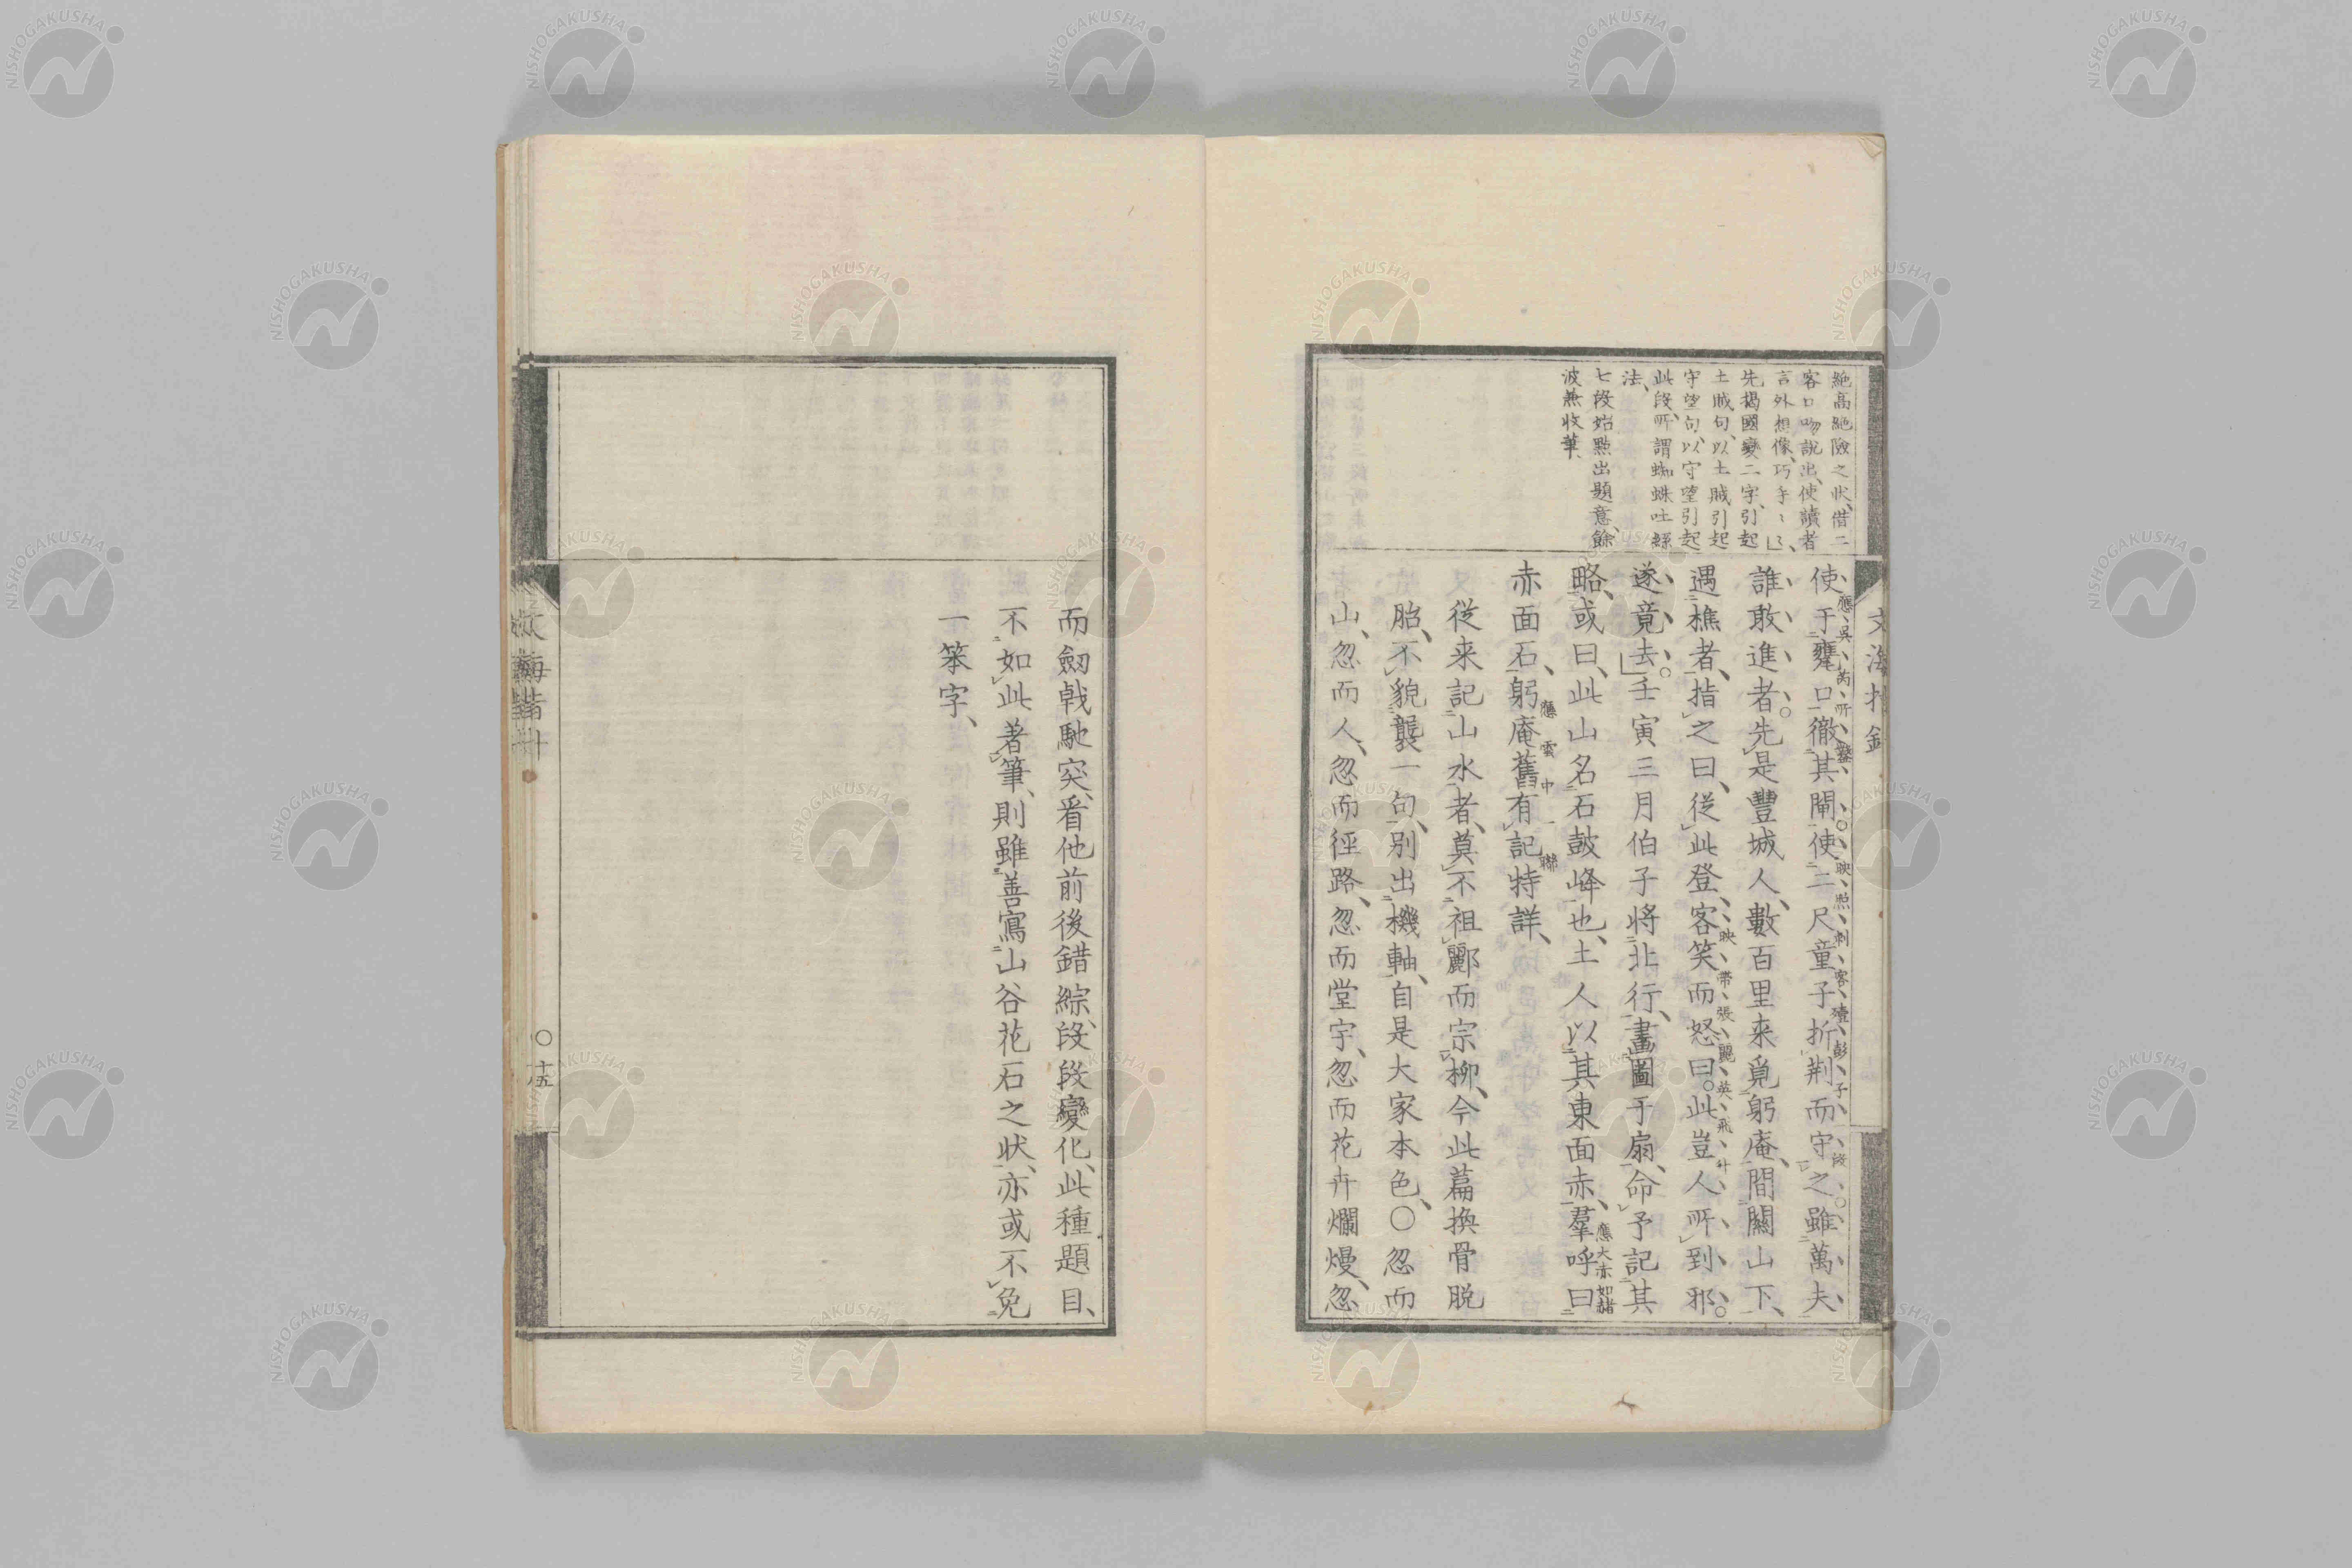 絶高絶險之状、借二
客口吻說出、使讀者
言外想像、巧手〻〻、
先揭國變二字、引起
土賊句、以土賊引起
守望句、以守望引起
此段、所謂蜘蛛吐絲
法、
七段始點出題意、餘
波兼收筆、
使于甕口徹其閘、使二尺童子折荆而守之、雖萬夫、
應呉芮所鑿
映照刺客
彭子
段
誰敢進者。先是豐城人、數百里来覓躬庵、間關山下、
遇樵者、指之曰、従此登、客笑而怒曰。此豈人所到邪。
映帯張麗英飛升
遂竟去。壬寅三月伯子将北行、畫圖于扇、命予記其
略、或曰、此山名石鼓峰也、土人以其東面赤、羣呼曰
應大赤如赭
赤面石、躬庵舊有記特詳、
應雲中一聯
従来記山水者、莫不祖酈而宗柳、今此篇換骨脱
胎、不貌襲一句、別出機軸、自是大家本色、〇忽而
山、忽而人、忽而徑路、忽而堂宇、忽而花卉爛熳、忽
而劔戟馳突、看他前後錯綜、段段變化、此種題目、
不如此著筆、則雖善寫山谷花石之状、亦或不免
一笨字、
〇十五
NISHOGAKUSHA